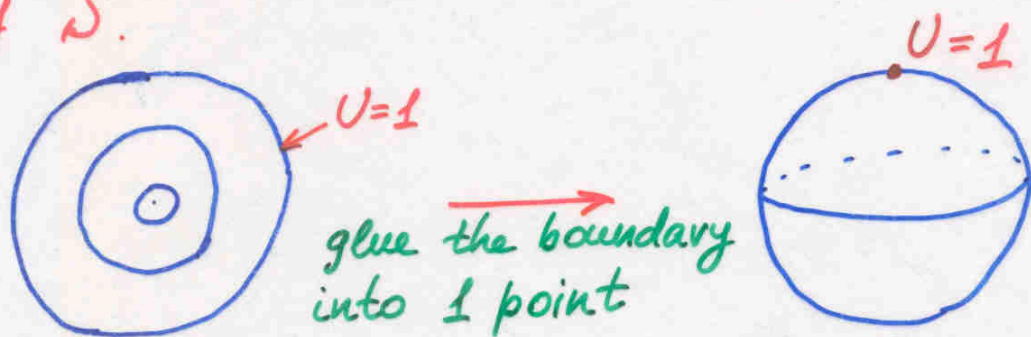 U=1
U=1
glue the boundary
into 1 point